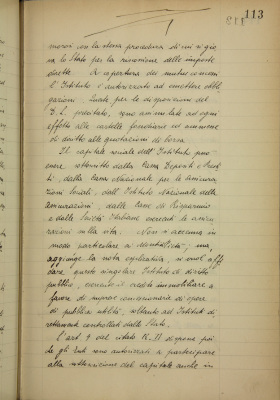 113
morosi con la stessa procedura di cui si gio-
va lo Stato per la riscossione delle imposte
dirette. A copertura dei mutui concessi
l'Istituto è autorizzato ad emettere obbli
gazioni le quali per le disposizioni del
D.L. precitato, sono assimilate ad ogni
effetto alle cartelle fondiarie ed ammesse
di diritto alle quotazioni di borsa.
Il capitale sociale dell'Istituto può
essere sottoscritto dalla Cassa Depositi e Presti
ti, dalla Cassa Nazionale per le Assicura
zioni Sociali, dall'Istituto Nazionale delle
Assicurazioni, dalle Casse di Risparmio
e dalle Società Italiane esercenti le assicu
razioni sulla vita. Non si accenna in
modo particolare a
aggiunge la nota esplicativa, si vuol affi
dare questo singolare Istituto di diritto
pubblico, esercente il credito immobiliare a
favore di imprese concessionarie di opere
di pubblica utilità, soltanto ad Istituti di
rettamente controllati dallo Stato.
L'art. 9 del citato R.D. dispone poi
che gli Enti sono autorizzati a partecipare
alla costituzione del capitale anche in